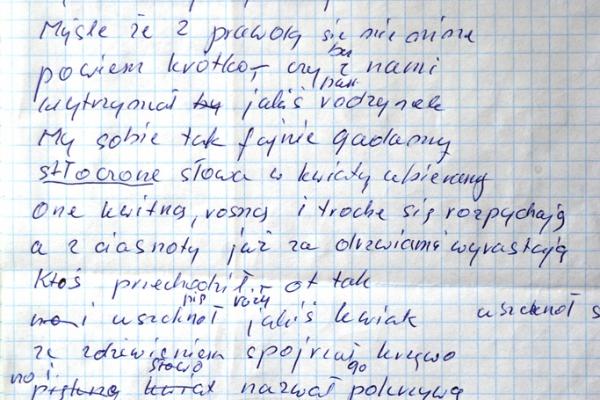 Myśle że z prawdą się nie minę
powiem krótko, czy z nami
wytrzymał by jakiś rodzynek
My sobie tak fajnie gadamy
stłoczone słowa w kwiaty ubieramy
One kwitną, rosną i troche się rozpychają
a z ciasnoty już za drzwiami wyrastają
Ktoś przechodził, ot tak
i uszcknoł jakiś kwiak uszcknoł s
ze zdziwieniem spojrzał krzywo
no i słowo nazwał go pokrzywą